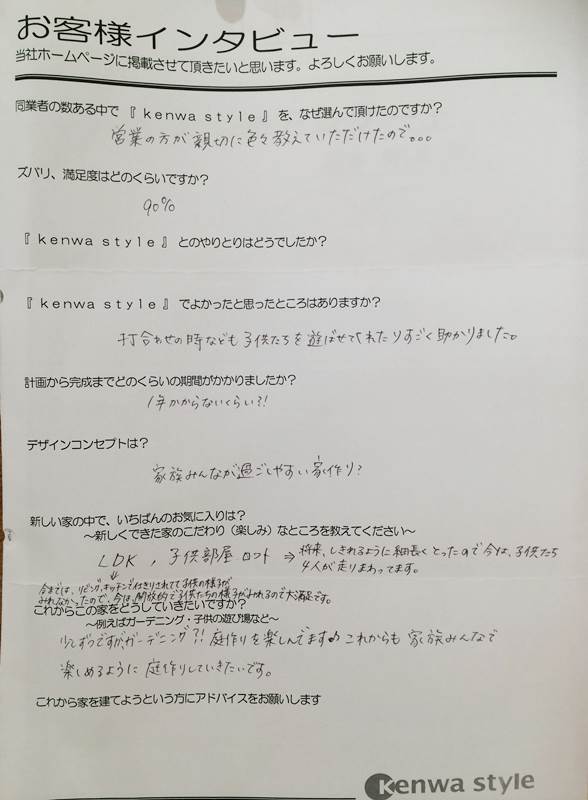 お客様インタビュー
当社ホームページに掲載させて頂きたいと思います。よろしくお願いします。
同業者の数ある中で『kenwa style』を、なぜ選んで頂けたのですか?
営業の方が親切に色々教えていただけたので。。。
ズバリ、満足度はどのくらいですか?
90%
『kenwa style』とのやりとりはどうでしたか?
『kenwa style』でよかったと思ったところはありますか?
打合わせの時なども子供たちを遊ばせてくれたりすごく助かりました。
計画から完成までどのくらいの期間がかかりましたか?
1年かからないくらい?!
デザインコンセプトは?
家族みんなが過ごしやすい家作り?
新しい家の中で、いちばんのお気に入りは?
～新しくできた家のこだわり(楽しみ)なところを教えてください～
LDK , 子供部屋 ロフト ⇒ 将来、しきれるように細長くとったので今は、子供たち
4人が走りまわってます。
今までは、リビング、キッチンで仕切りされてて子供の様子が
みれなかったので、今は、開放的で子供たちの様子がみれるので大満足です。
これからこの家をどうしていきたいですか?
～例えばガーデニング・子供の遊び場など～
少しずつですが、ガーデニング?!庭作りを楽しんでます♪これからも家族みんなで
楽しめるように庭作りしていきたいです。
これから家を建てようという方にアドバイスをお願いします
Kenwa style